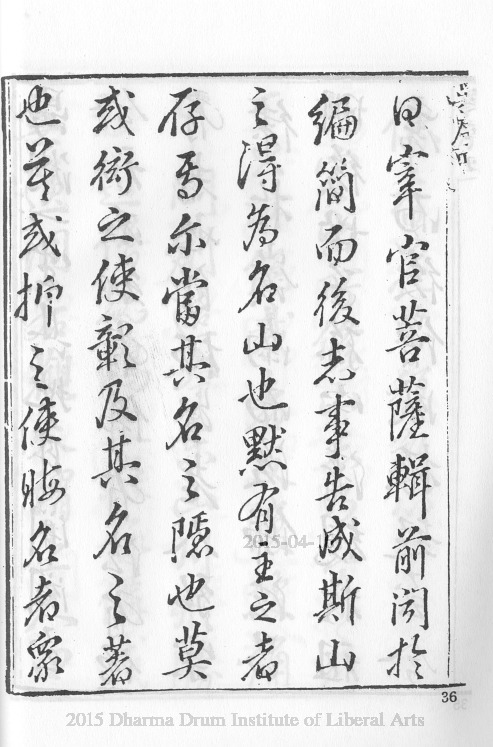 日宰官菩薩輯前聞於
編簡而後志事告成斯山
之得為名山也默有主之者
存焉尔當其名之隱也莫
或衒之使顯及其名之著
也莫或抑之使晦名者眾
36
2015 Dharma Drum Institute of Liberal Arts